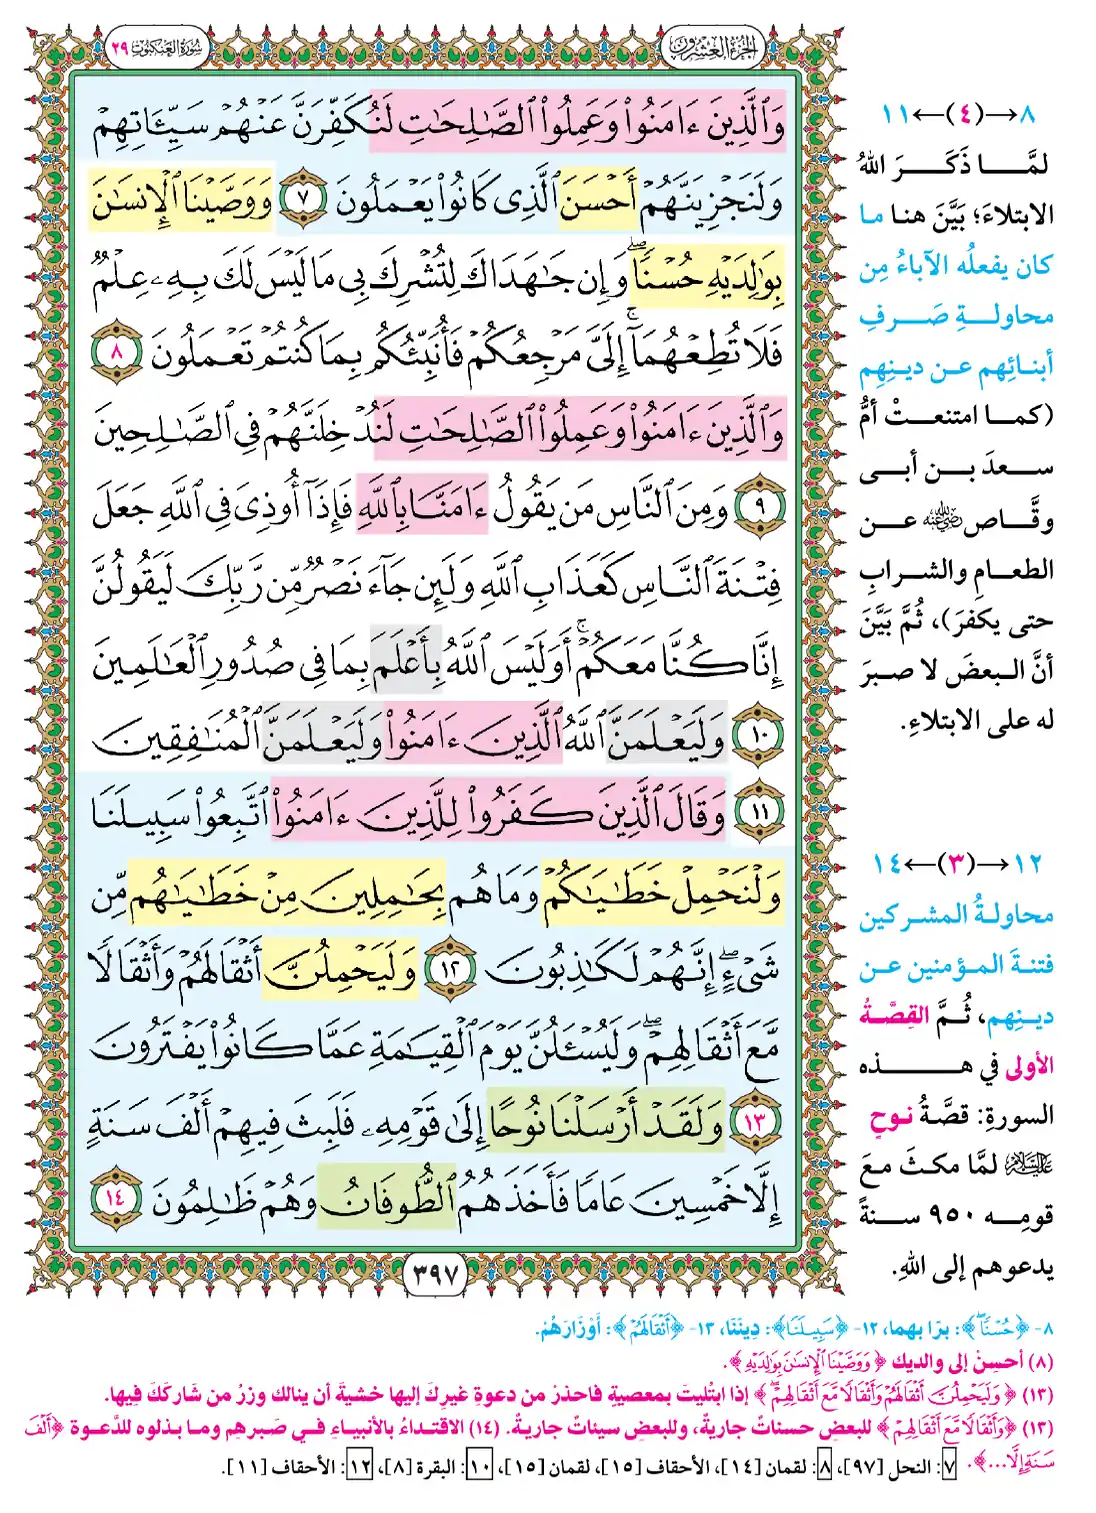 الجزء العشرون
سورة العنكبوت ٢٩
وَٱلَّذِينَ ءَامَنُوا۟ وَعَمِلُوا۟ ٱلصَّـٰلِحَـٰتِ لَنُكَفِّرَنَّ عَنْهُمْ سَيِّـَٔاتِهِمْ
وَلَنَجْزِيَنَّهُمْ أَحْسَنَ ٱلَّذِى كَانُوا۟ يَعْمَلُونَ ٧ وَوَصَّيْنَا ٱلْإِنسَـٰنَ
بِوَٰلِدَيْهِ حُسْنًا ۖ وَإِن جَـٰهَدَاكَ لِتُشْرِكَ بِى مَا لَيْسَ لَكَ بِهِۦ عِلْمٌ
فَلَا تُطِعْهُمَآ ۚ إِلَىَّ مَرْجِعُكُمْ فَأُنَبِّئُكُم بِمَا كُنتُمْ تَعْمَلُونَ ٨
وَٱلَّذِينَ ءَامَنُوا۟ وَعَمِلُوا۟ ٱلصَّـٰلِحَـٰتِ لَنُدْخِلَنَّهُمْ فِى ٱلصَّـٰلِحِينَ
٩ وَمِنَ ٱلنَّاسِ مَن يَقُولُ ءَامَنَّا بِٱللَّهِ فَإِذَآ أُوذِىَ فِى ٱللَّهِ جَعَلَ
فِتْنَةَ ٱلنَّاسِ كَعَذَابِ ٱللَّهِ وَلَئِن جَآءَ نَصْرٌ مِّن رَّبِّكَ لَيَقُولُنَّ
إِنَّا كُنَّا مَعَكُمْ ۚ أَوَلَيْسَ ٱللَّهُ بِأَعْلَمَ بِمَا فِى صُدُورِ ٱلْعَـٰلَمِينَ
١٠ وَلَيَعْلَمَنَّ ٱللَّهُ ٱلَّذِينَ ءَامَنُوا۟ وَلَيَعْلَمَنَّ ٱلْمُنَـٰفِقِينَ
١١ وَقَالَ ٱلَّذِينَ كَفَرُوا۟ لِلَّذِينَ ءَامَنُوا۟ ٱتَّبِعُوا۟ سَبِيلَنَا
وَلْنَحْمِلْ خَطَـٰيَـٰكُمْ وَمَا هُم بِحَـٰمِلِينَ مِنْ خَطَـٰيَـٰهُم مِّن
شَىْءٍ ۖ إِنَّهُمْ لَكَـٰذِبُونَ ١٢ وَلَيَحْمِلُنَّ أَثْقَالَهُمْ وَأَثْقَالًا
مَّعَ أَثْقَالِهِمْ ۖ وَلَيُسْـَٔلُنَّ يَوْمَ ٱلْقِيَـٰمَةِ عَمَّا كَانُوا۟ يَفْتَرُونَ
١٣ وَلَقَدْ أَرْسَلْنَا نُوحًا إِلَىٰ قَوْمِهِۦ فَلَبِثَ فِيهِمْ أَلْفَ سَنَةٍ
إِلَّا خَمْسِينَ عَامًا فَأَخَذَهُمُ ٱلطُّوفَانُ وَهُمْ ظَـٰلِمُونَ ١٤
٣٩٧
٨→(٤)←١١
لمَّا ذَكَرَ اللهُ
الابتلاءَ؛ بَيَّنَ هنا ما
كان يفعلُه الآباءُ مِن
محاولةِ صَرفِ
أبنائِهم عن دينِهِم
(كما امتنعتْ أمُّ
سعدَ بن أبي
وقَّاص رضي الله عنه عن
الطعامِ والشرابِ
حتى يكفرَ)، ثُمَّ بَيَّنَ
أنَّ البعضَ لا صبرَ
له على الابتلاءِ.
١٢→(٣)←١٤
محاولةُ المشركين
فتنةَ المؤمنين عن
دينِهم، ثُمَّ القِصَّةُ
الأولى في هذه
السورةِ: قصَّةُ نوحٍ
عليه السلام لمَّا مكثَ معَ
قومِه ٩٥٠ سنةً
يدعوهم إلى اللهِ.
٨- ﴿حُسْنًا ۖ﴾: برًا بهما، ١٢- ﴿سَبِيلَنَا﴾: دِينَنَا، ١٣- ﴿أَثْقَالَهُمْ﴾: أَوْزَارَهُمْ.
(٨) أحسِنْ إلى والديك ﴿وَوَصَّيْنَا ٱلْإِنسَـٰنَ بِوَٰلِدَيْهِ﴾.
(١٣) ﴿وَلَيَحْمِلُنَّ أَثْقَالَهُمْ وَأَثْقَالًا مَّعَ أَثْقَالِهِمْ ۖ﴾ إذا ابتُليتَ بمعصيةٍ فاحذرْ من دعوةِ غيرِكَ إليها خشيةَ أن ينالك وزرُ من شاركَكَ فيها.
(١٣) ﴿وَأَثْقَالًا مَّعَ أَثْقَالِهِمْ﴾ للبعضِ حسناتٌ جاريةٌ، وللبعضِ سيئاتٌ جاريةٌ. (١٤) الاقتداءُ بالأنبياءِ في صَبرِهِم وما بذلوه للدَّعوة ﴿أَلْفَ
سَنَةٍ إِلَّا...﴾. ٧: النحل [٩٧]، ٨: لقمان [١٤]، الأحقاف [١٥]، لقمان [١٥]، ١٠: البقرة [٨]، ١٢: الأحقاف [١١].